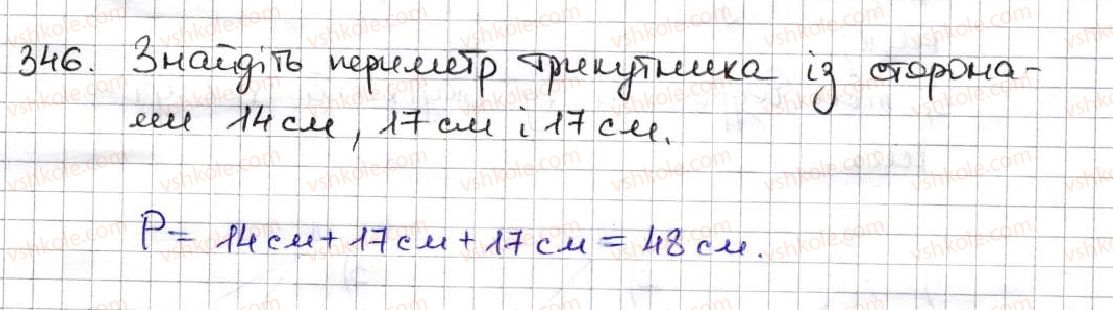 346. Знайдіть периметр трикутника із сторона-
ми 14 см, 17 см і 17 см.
P = 14 см + 17 см + 17 см = 48 см.